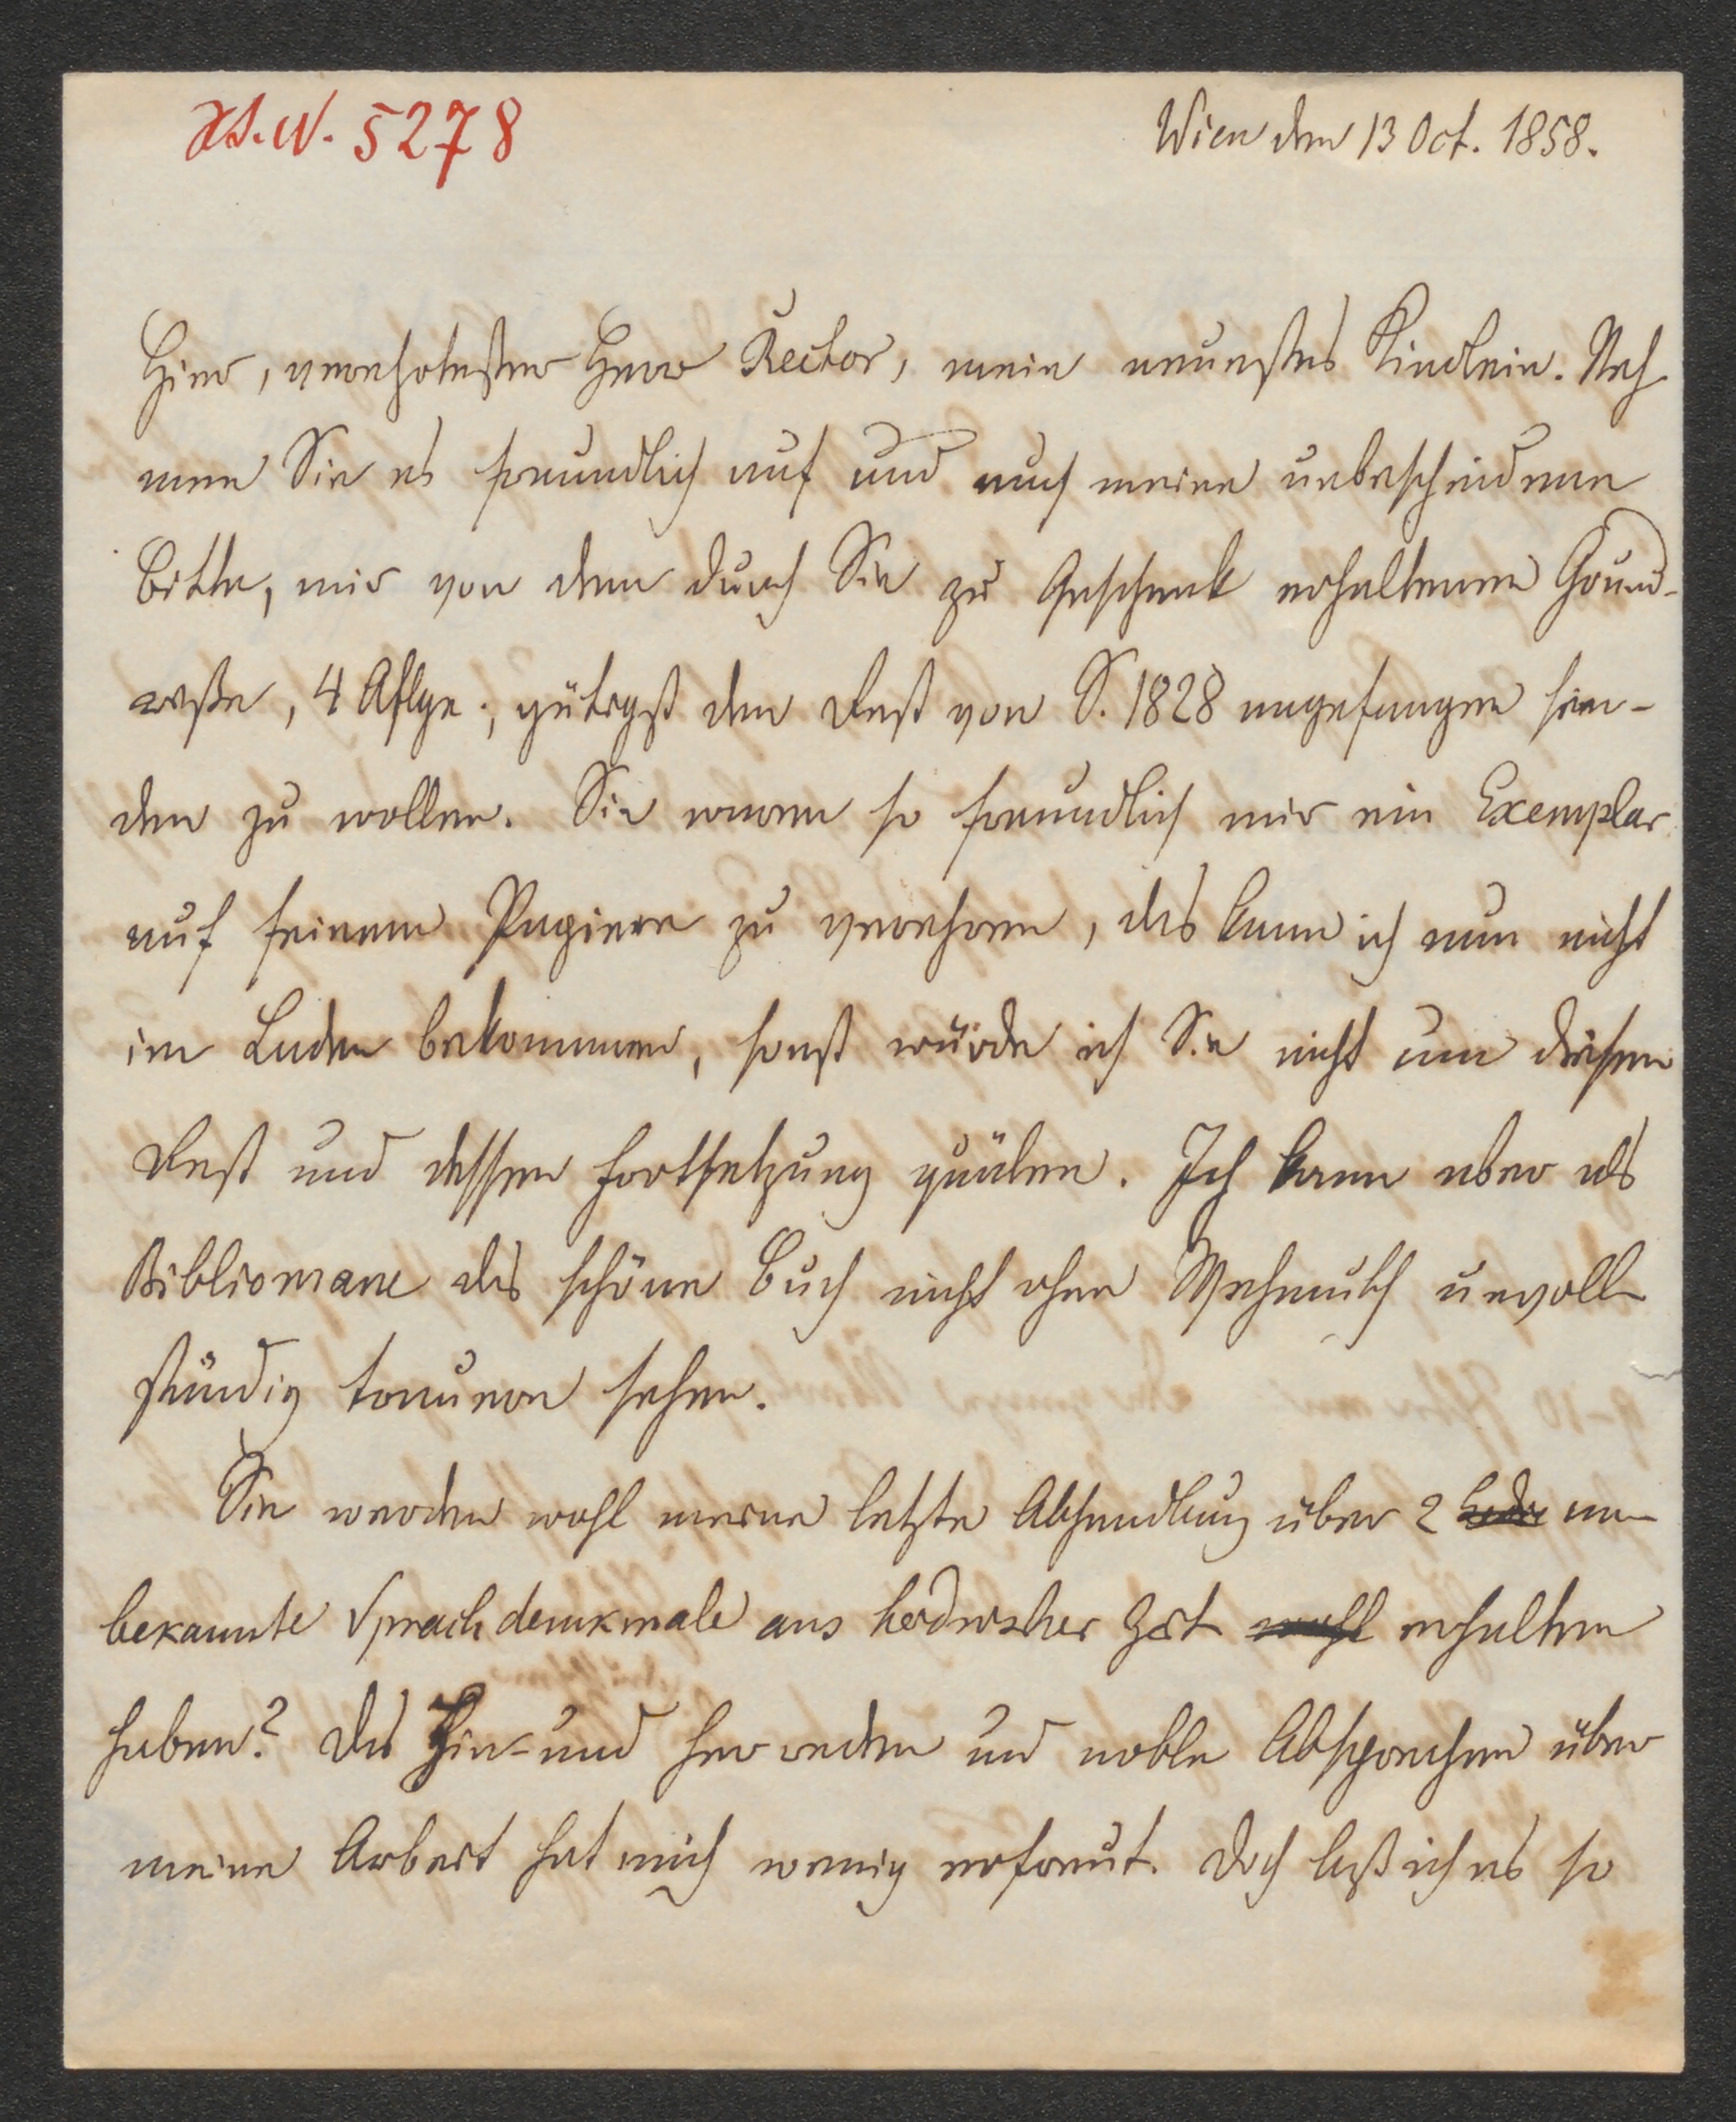 Hs. N. 5278
Wien den 13 Oct. 1858.
Hier, verehrtester Herr Rector, mein neuestes Kindlein. Neh
men Sie es freundlich auf und auch meine unbescheidene
Bitte, mir von dem durch Sie zu Geschenk erhaltenen Grund-
risse, 4 Aflge., gütigst den Rest von S. 1828 angefangen sen-
den zu wollen. Sie waren so freundlich mir ein Exemplar
auf feinem Papiere zu verehren, das kann ich nun nicht
im Laden bekommen, sonst würde ich Sie nicht um diesen
Rest und dessen Fortsetzung quälen. Ich kann aber als
Bibliomane das schöne Buch nicht ohne Wehmuth unvoll
ständig trauern sehen.
Sie werden wohl meine letzte Abhandlung über 2 un
bekannte Sprachdenkmale aus heidnischer Zeit wohl erhalten
haben? Das Hin- und her reden und noble Absprechen über
meine Arbeit hat mich wenig erfreut. Doch laß ich es so